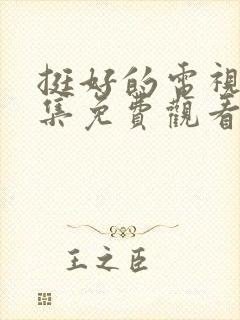 挺好的電視
集免費觀看
王之臣